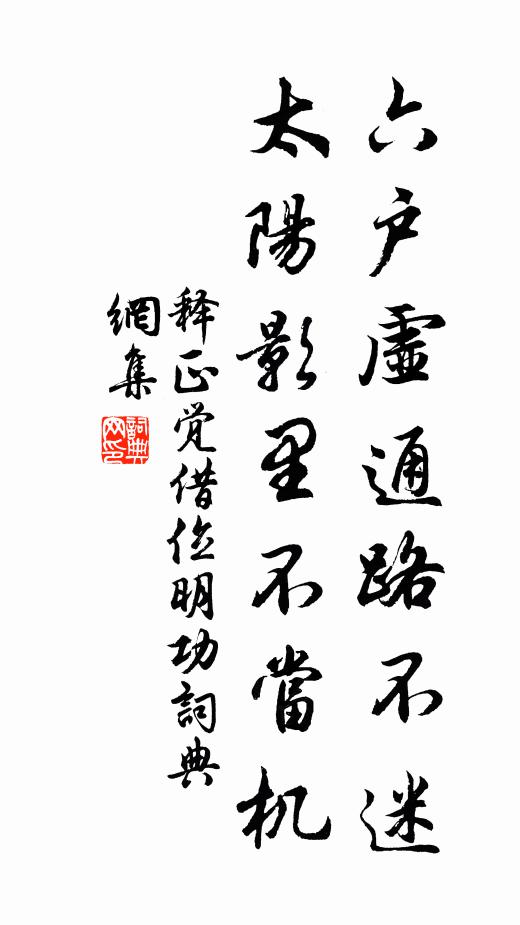 六户虛通路不迷
太陽影里不當机
释正觉借位明功詞典
網集
詞典
网印